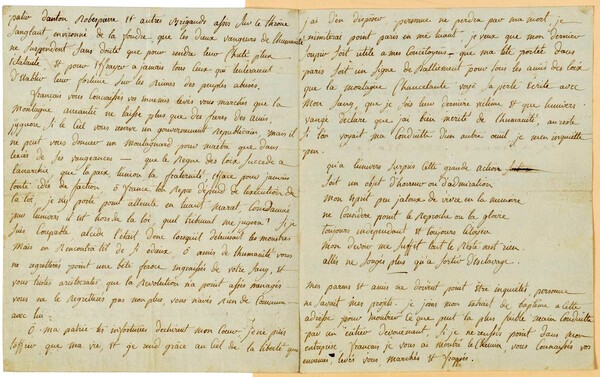 danton Robespierre et autres Brigands assis sur le thrône
sanglant, environné de la foudre, que les dieux vengeurs de l'humanité
ne suspendent sans doute que pour rendre leur chute plus
Eclatante et pour Effrayer a jamais tous ceux qui tenteraient
d'Etablir leur fortune sur les Ruines des peuples abusés.
français vous Connaissés vos ennemis levés vous marchés que la
Montagne anéantie ne laisse plus que des freres des amis,
j'ignore si le Ciel nous reserve un gouvernement Republicain mais il
ne peut nous donner un Montagnard pour maitre que dans
l'excès de ses vengeances — que le Regne des loix succede a
l'anarchie que la paix l'union la fraternité, efface pour jamais
toute idée de faction. ô france ton Repos dépend de l'exécution de
la loi, je n'y porte point atteinte en tuant marat, Condamné
par l'univers il est hors de la loi. quel tribunal me jugera? Si je
suis Coupable alcide l'était donc lorsqu'il detruisait les monstres
mais en Rencontra t'il de si odieux. ô amis de l'humanité vous
ne regretterés point une bête feroce engraissée de votre sang, et
vous tristes aristocrates que la Revolution n'a point assés menagés
vous ne le Regretterés pas non plus, vous n'avés rien de Commun
avec lui.
Ô ma patrie tes infortunes dechirent mon Coeur je ne puis
t'offrir que ma vie, et je rend grâce au Ciel de la liberté que
j'ai d'en disposer personne ne perdra par ma mort. je
n'imiterai point paris en me tuant. je veux que mon dernier
soupir soit utile a mes Concitoyens, que ma tête portée dans
paris soit un signe de Ralliement pour tous les amis des loix
que la montagne Chancelante voye sa perte Ecrite avec
Mon Sang, que je sois leur derniere victime et que l'univers
vangé declare que j'ai bien merité de l'humanité, au reste
Si l'on voyait ma Conduitte d'un autre oeuil je m'en inquiette
peu.
qu'à l'univers surpris Cette grande action
soit un objet d'horreur ou d'admiration
mon Esprit peu jaloux de vivre en la memoire
ne Considere point le Reproche ou la gloire
toujours independant et toujours Citoïen
Mon devoir me suffit tout le Reste n'est rien
allés ne songés plus qu'a sortir d'esclavage.
Mes parens et amis ne doivent point être inquietés personne
ne savait mes projets. je joins mon extrait de baptême a Cette
adresse pour montrer Ce que peut la plus faible main Conduitte
par un entier devouement. Si je ne reussis point dans mon
entreprise français je vous ai montré le Chemin, vous Connaissés vos
ennemis, levés vous marchés et frappés.